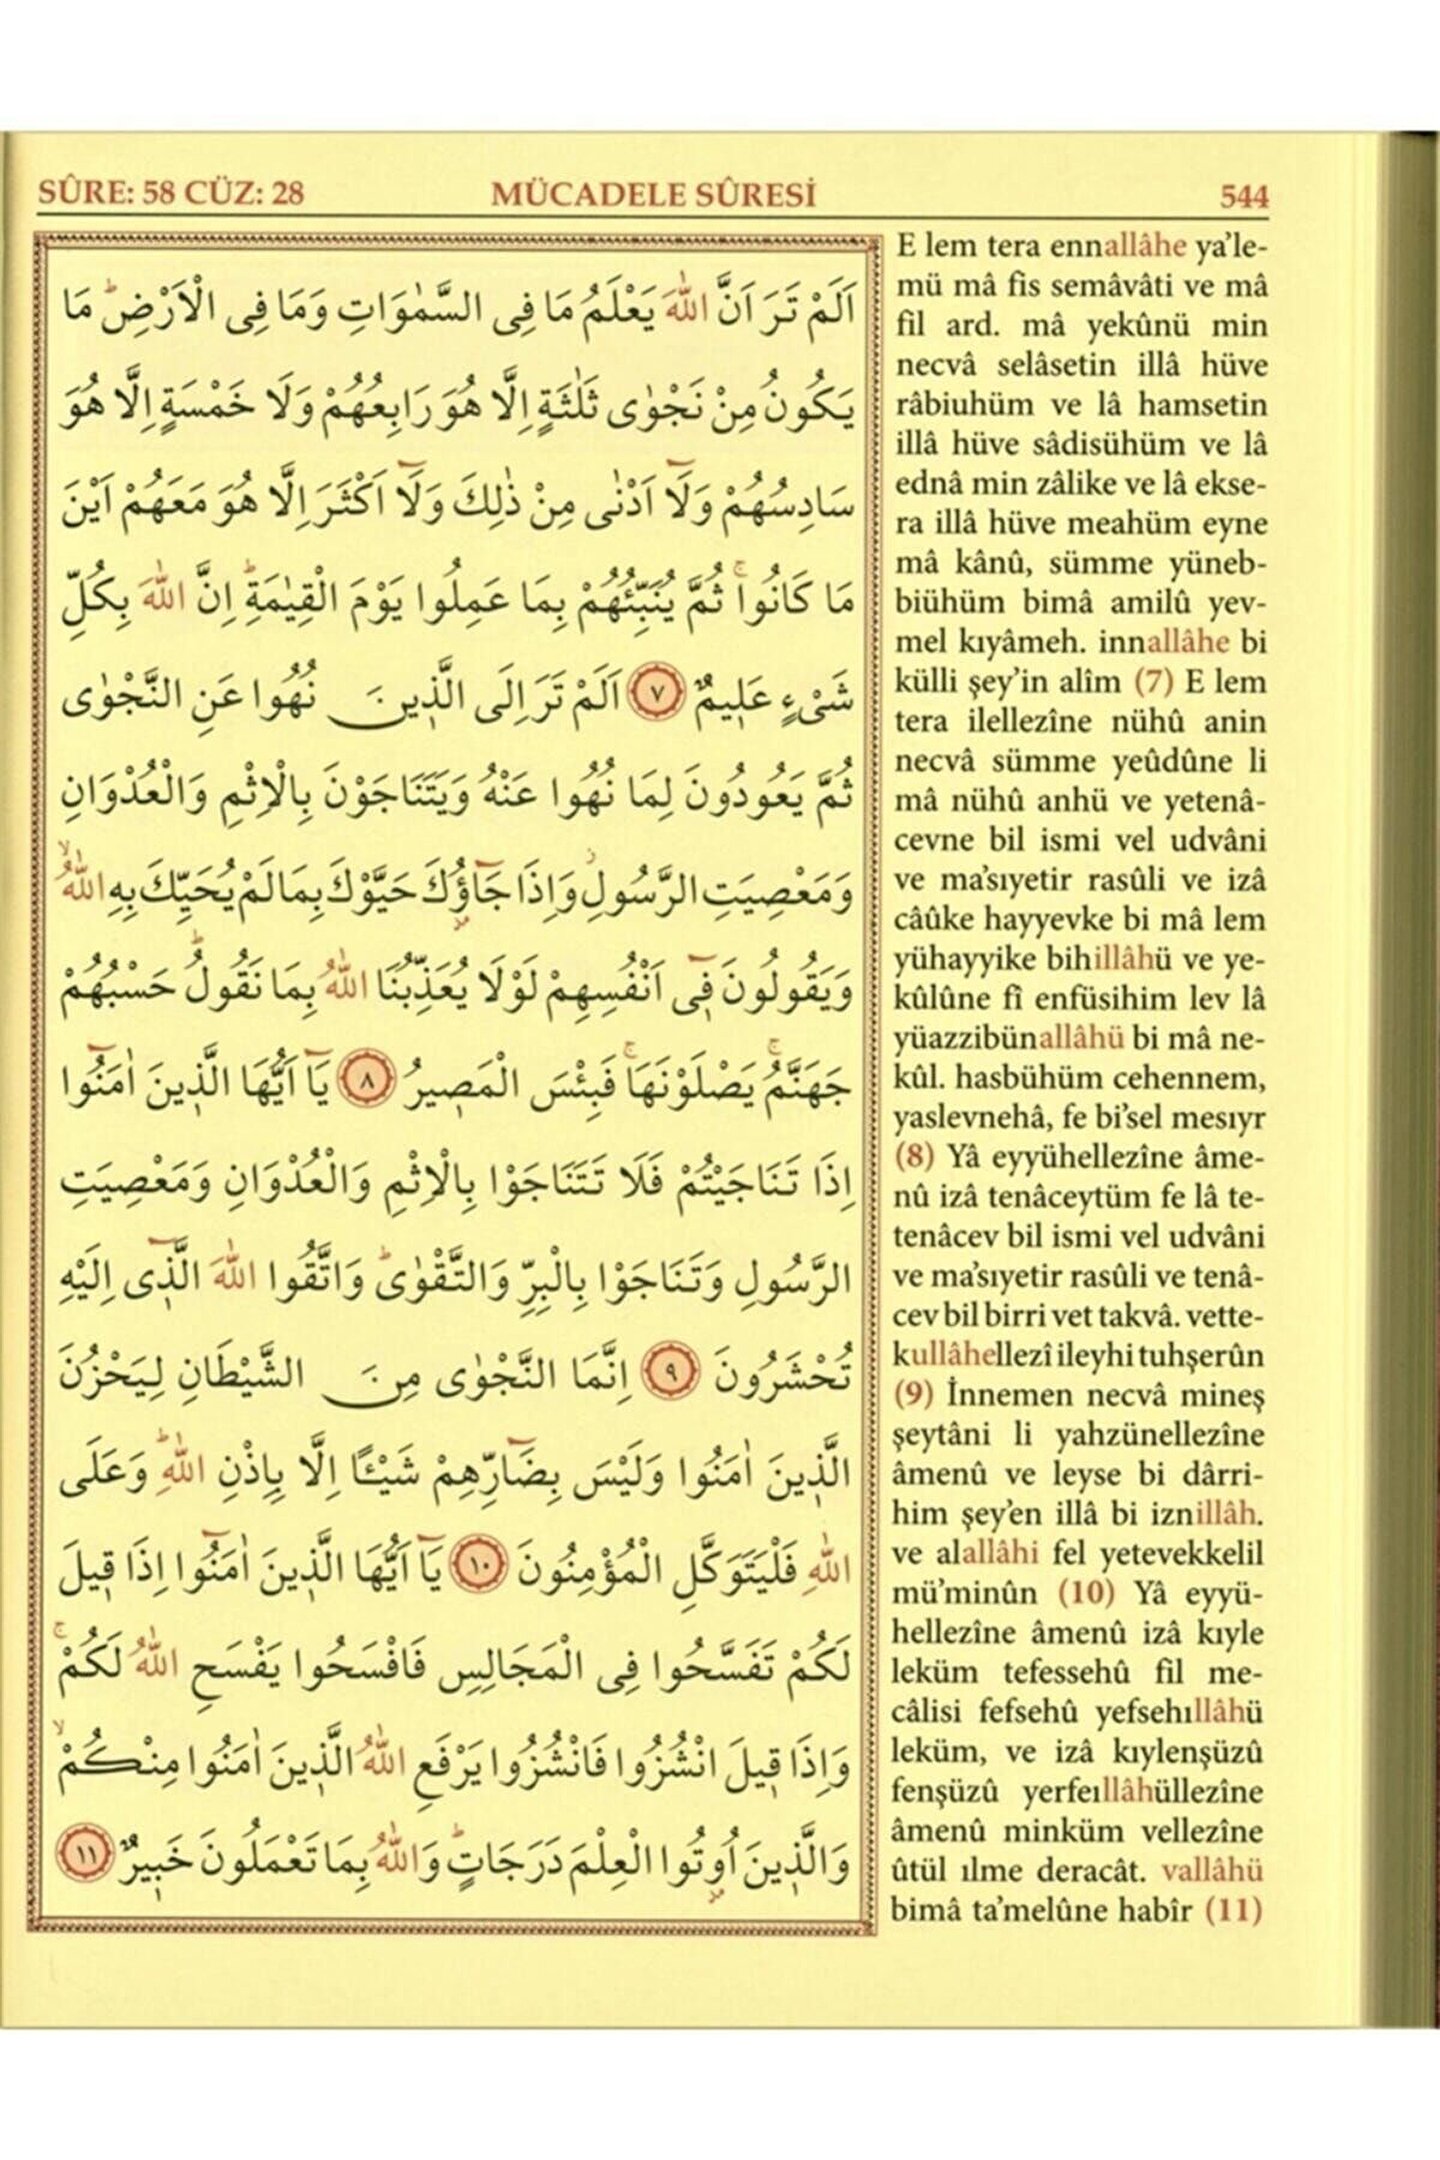 SÛRE: 58 CÜZ: 28 MÜCADELE SÛRESİ 544
اَلَمْ تَرَ اَنَّ اللّٰهَ يَعْلَمُ مَا فِى السَّمٰوَاتِ وَمَا فِى الْاَرْضِۜ مَا
يَكُونُ مِنْ نَجْوٰى ثَلٰثَةٍ اِلَّا هُوَ رَابِعُهُمْ وَلَا خَمْسَةٍ اِلَّا هُوَ
سَادِسُهُمْ وَلَٓا اَدْنٰى مِنْ ذٰلِكَ وَلَٓا اَكْثَرَ اِلَّا هُوَ مَعَهُمْ اَيْنَ
مَا كَانُواۚ ثُمَّ يُنَبِّئُهُمْ بِمَا عَمِلُوا يَوْمَ الْقِيٰمَةِۜ اِنَّ اللّٰهَ بِكُلِّ
شَىْءٍ عَلٖيمٌ ﴿٧﴾ اَلَمْ تَرَ اِلَى الَّذٖينَ نُهُوا عَنِ النَّجْوٰى
ثُمَّ يَعُودُونَ لِمَا نُهُوا عَنْهُ وَيَتَنَاجَوْنَ بِالْاِثْمِ وَالْعُدْوَانِ
وَمَعْصِيَتِ الرَّسُولِؗ وَاِذَا جَٓاؤُ۫كَ حَيَّوْكَ بِمَا لَمْ يُحَيِّكَ بِهِ اللّٰهُۙ
وَيَقُولُونَ فٖٓى اَنْفُسِهِمْ لَوْلَا يُعَذِّبُنَا اللّٰهُ بِمَا نَقُولُۜ حَسْبُهُمْ
جَهَنَّمُۚ يَصْلَوْنَهَاۚ فَبِئْسَ الْمَصٖيرُ ﴿٨﴾ يَٓا اَيُّهَا الَّذٖينَ اٰمَنُٓوا
اِذَا تَنَاجَيْتُمْ فَلَا تَتَنَاجَوْا بِالْاِثْمِ وَالْعُدْوَانِ وَمَعْصِيَتِ
الرَّسُولِ وَتَنَاجَوْا بِالْبِرِّ وَالتَّقْوٰىۜ وَاتَّقُوا اللّٰهَ الَّذٖٓى اِلَيْهِ
تُحْشَرُونَ ﴿٩﴾ اِنَّمَا النَّجْوٰى مِنَ الشَّيْطَانِ لِيَحْزُنَ
الَّذٖينَ اٰمَنُوا وَلَيْسَ بِضَٓارِّهِمْ شَيْـًٔا اِلَّا بِاِذْنِ اللّٰهِۜ وَعَلَى
اللّٰهِ فَلْيَتَوَكَّلِ الْمُؤْمِنُونَ ﴿١٠﴾ يَٓا اَيُّهَا الَّذٖينَ اٰمَنُٓوا اِذَا قٖيلَ
لَكُمْ تَفَسَّحُوا فِى الْمَجَالِسِ فَافْسَحُوا يَفْسَحِ اللّٰهُ لَكُمْۚ
وَاِذَا قٖيلَ انْشُزُوا فَانْشُزُوا يَرْفَعِ اللّٰهُ الَّذٖينَ اٰمَنُوا مِنْكُمْۙ
وَالَّذٖينَ اُو۫تُوا الْعِلْمَ دَرَجَاتٍۜ وَاللّٰهُ بِمَا تَعْمَلُونَ خَبٖيرٌ ﴿١١﴾
E lem tera ennallâhe ya’le-
mü mâ fis semâvâti ve mâ
fil ard. mâ yekûnü min
necvâ selâsetin illâ hüve
râbiuhüm ve lâ hamsetin
illâ hüve sâdisühüm ve lâ
ednâ min zâlike ve lâ ekse-
ra illâ hüve meahüm eyne
mâ kânû, sümme yüneb-
biühüm bimâ amilû yev-
mel kıyâmeh. innallâhe bi
külli şey’in alîm (7) E lem
tera ilellezîne nühû anin
necvâ sümme yeûdûne li
mâ nühû anhü ve yetenâ-
cevne bil ismi vel udvâni
ve ma’sıyetir rasûli ve izâ
câûke hayyevke bi mâ lem
yühayyike bihillâhü ve ye-
kûlûne fî enfüsihim lev lâ
yüazzibünallâhü bi mâ ne-
kûl. hasbühüm cehennem,
yaslevnehâ, fe bi’sel mesıyr
(8) Yâ eyyühellezîne âme-
nû izâ tenâceytüm fe lâ te-
tenâcev bil ismi vel udvâni
ve ma’sıyetir rasûli ve tenâ-
cev bil birri vet takvâ. vette-
kullâhellezî ileyhi tuhşerûn
(9) İnnemen necvâ mineş
şeytâni li yahzünellezîne
âmenû ve leyse bi dârri-
him şey’en illâ bi iznillâh.
ve alallâhi fel yetevekkelil
mü’minûn (10) Yâ eyyü-
hellezîne âmenû izâ kıyle
leküm tefessehû fil me-
câlisi fefsehû yefsehıllâhü
leküm, ve izâ kıylenşüzû
fenşüzû yerfeıllâhüllezîne
âmenû minküm vellezîne
ûtül ılme deracât. vallâhü
bimâ ta’melûne habîr (11)